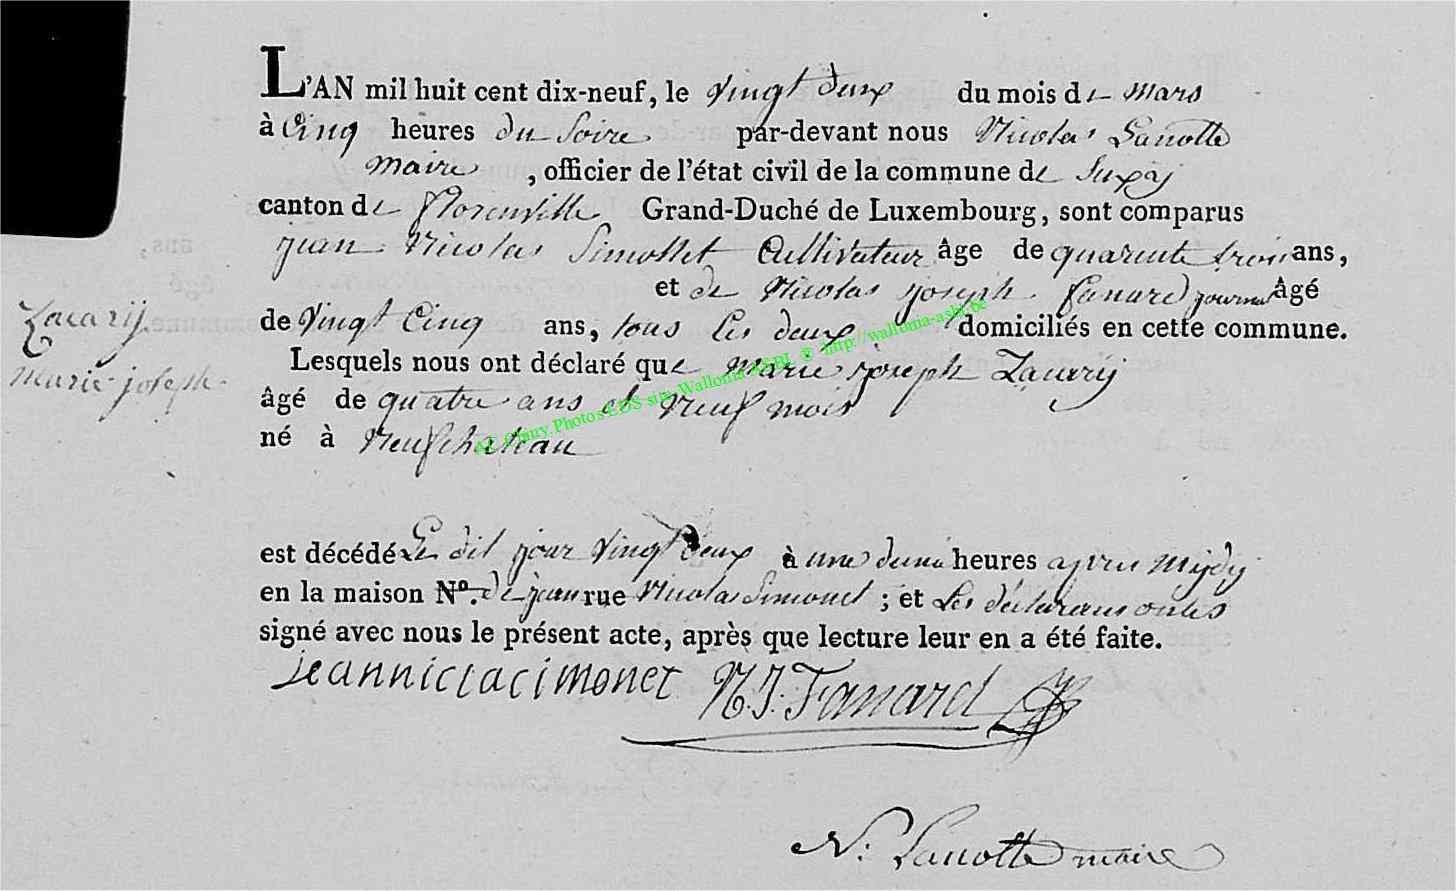 L'AN mil huit cent dix-neuf, le vingt deux du mois de mars
à Cinq heures du Soire par-devant nous Nicolas Lanotte
maire, officier de l'état civil de la commune de Suxÿ
canton de florenville Grand-Duché de Luxembourg, sont comparus
jean Nicolas Simollet Cultivateur âge de quarente trois ans,
et de Nicolas joseph fanard journal âgé
de vingt Cinq ans, tous Les deux domiciliés en cette commune.
Lesquels nous ont déclaré que marie joseph Zacarÿ
âgé de quatre ans et Neuf mois
né à Neufchateau
Zacarÿ
marie joseph
est décédé Le dit jour vingt deux à une demi heures apres mÿdÿ
en la maison N°. de jean rue Nicolas Simonet ; et Les déclarans onts
signé avec nous le présent acte, après que lecture leur en a été faite.
jeanniclacimonet N. J. Fanard
N. Lanotte maire
http://walloma-asbl.be